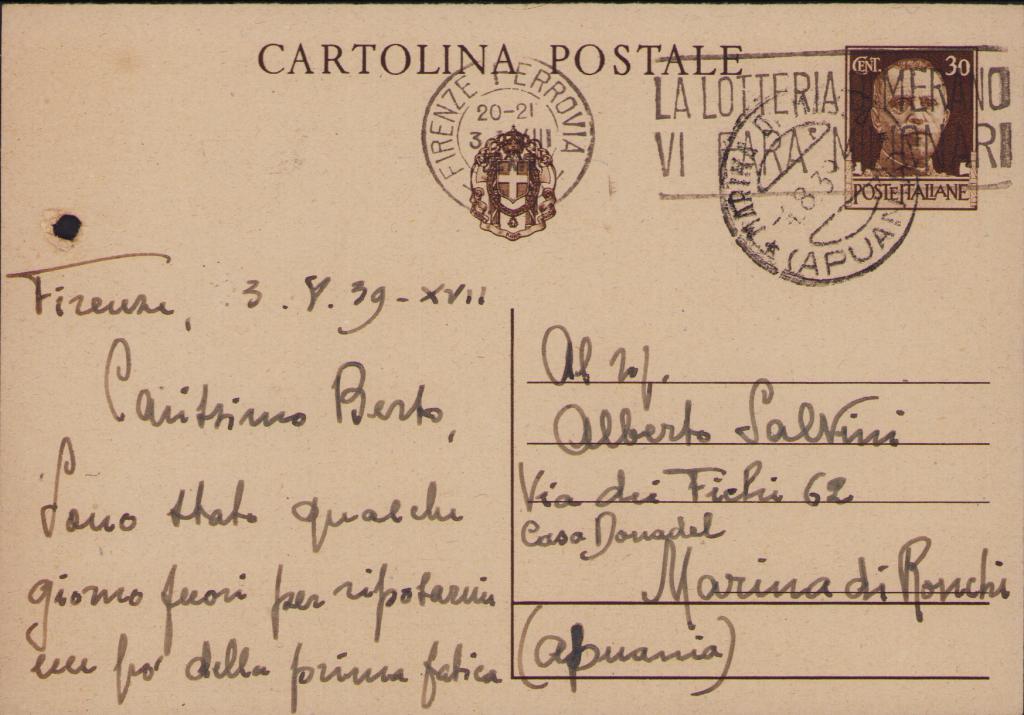 CARTOLINA POSTALE
FIRENZE FERROVIA
20-21
LA LOTTERIA DI MERANO
VI FARA' MILIONARI
CENT. 30
POSTE ITALIANE
MARINA D
8.39
(APUAN
Firenze, 3.8.39-XVII
Carissimo Berto,
Sono stato qualche
giorno fuori per riposarmi
un po' della prima fatica
Al
Alberto Salvini
Via dei Fichi 62
Casa Donadel
Marina di Ronchi
(Apuania)